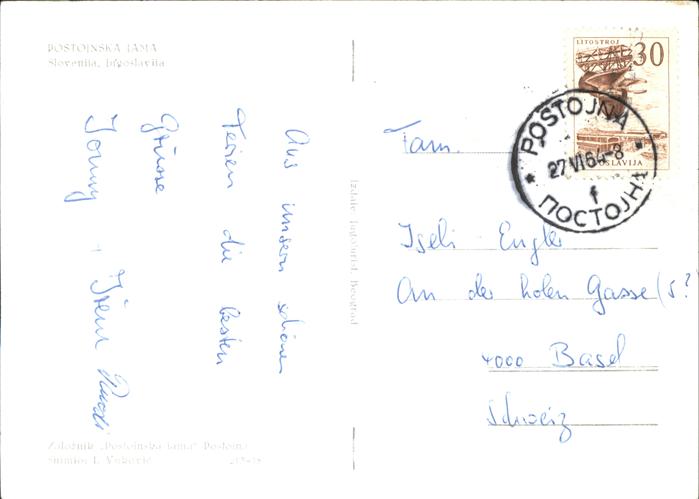 POSTOJNSKA JAMA
Slovenija, Jugoslavija
Aus unsern schönen
Ferien die besten
Grüsse
Izdaje Jugoturist, Beograd
Založnik „Postojnska jama" Postojna
Snimio: I. Vuković
LITOSTROJ 30
JUGOSLAVIJA
POSTOJNA
27 VI 64-8
f
ПОСТОЈНА
Fam.
Iseli Engler
An der holen Gasse
4000 Basel
Schweiz